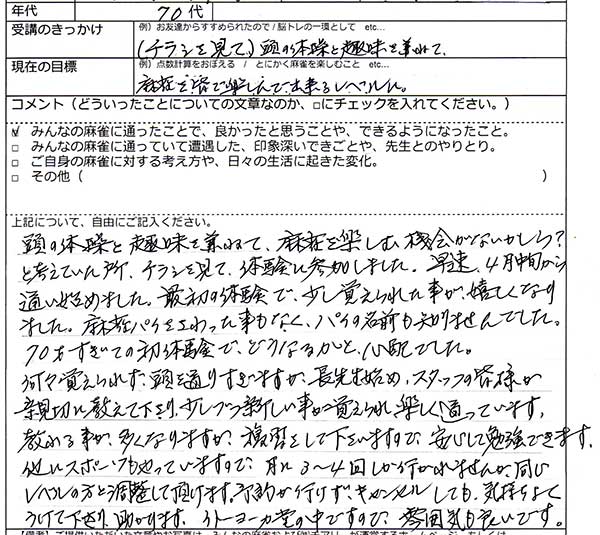 年代 70代
受講のきっかけ 例）お友達からすすめられたので / 脳トレの一環として etc...
(チラシを見て)頭の体操と趣味を兼ねて、
現在の目標 例）点数計算をおぼえる / とにかく麻雀を楽しむこと etc...
麻雀を皆で楽しんで出来るレベルに。
コメント（どういったことについての文章なのか、□にチェックを入れてください。）
☑ みんなの麻雀に通ったことで、良かったと思うことや、できるようになったこと。
□ みんなの麻雀に通っていて遭遇した、印象深いできごとや、先生とのやりとり。
□ ご自身の麻雀に対する考え方や、日々の生活に起きた変化。
□ その他（　　）
上記について、自由にご記入ください。
頭の体操と趣味を兼ねて、麻雀を楽しむ機会がないかしら?
と考えていた所、チラシを見て、体験に参加しました。早速、4月中旬から
通い始めました。最初の体験で、少し覚えられた事が嬉しくなり
ました。麻雀パイをさわった事もなく、パイの名前も知りませんでした。
70才すぎての初体験で、どうなるかと、心配でした。
何々覚えられず、頭を通りすぎますが、長先生始め、スタッフの皆様が
親切に教えて下さり、少しづつ新しい事が覚えられ、楽しく通っています。
教わる事が、多くなりますが、復習をして下さいますので、安心して勉強できます。
他にスポーツもやっていますので、月に3〜4回しか行かれませんが、同じ
レベルの方と調整して頂けます。予約が行けず、キャンセルしても、気持ちよく
うけて下さり、助かります。イトーヨーカ堂の中ですので、雰囲気も良いです。